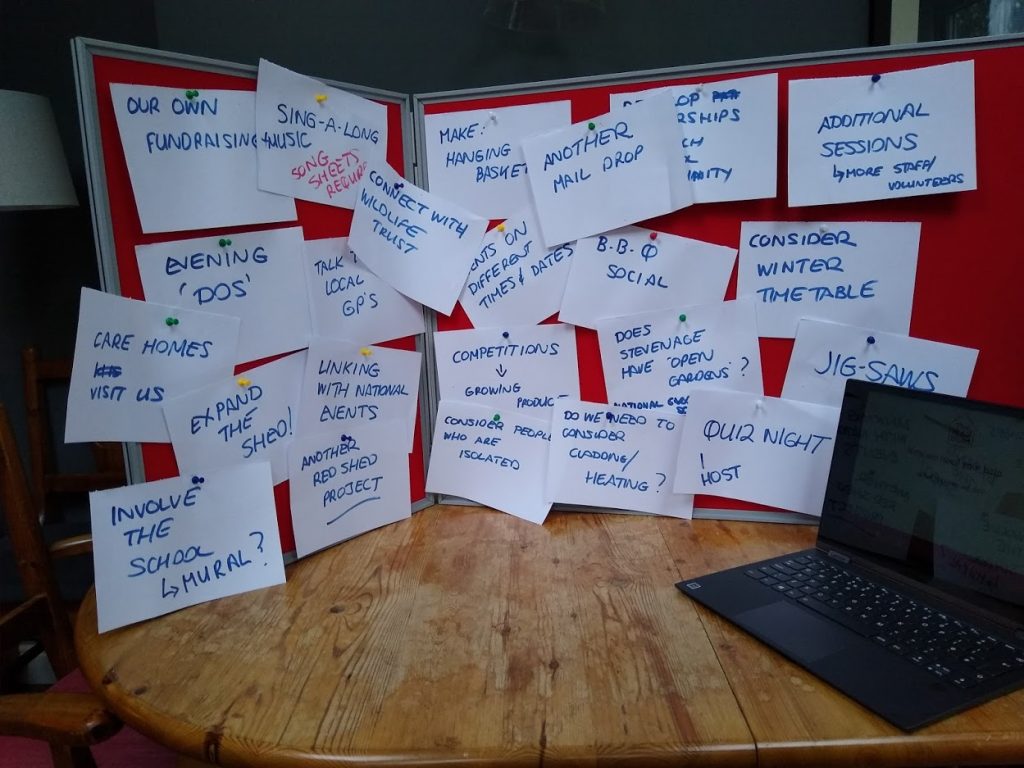 OUR OWN
FUNDRAISING
SING-A-LONG
+MUSIC
SONG
SHEETS
MAKE:
HANGING
BASKET
ANOTHER
MAIL DROP
ADDITIONAL
SESSIONS
↳MORE STAFF/
VOLUNTEERS
EVENING
'DOS'
TALK
LOCAL
GP'S
CONNECT WITH
WILDLIFE
TRUST
ON
DIFFERENT
TIMES & DATES
B-B-Q
SOCIAL
CONSIDER
WINTER
TIMETABLE
CARE HOMES
VISIT US
EXPAND
THE
SHED!
LINKING
WITH NATIONAL
EVENTS
COMPETITIONS
↓
GROWING
DOES
STEVENAGE
HAVE 'OPEN
GARDENS'?
NATIONAL
JIG-SAWS
INVOLVE
THE
SCHOOL
↳MURAL?
ANOTHER
RED SHED
PROJECT
CONSIDER PEOPLE
WHO ARE
ISOLATED
DO WE NEED TO
CONSIDER
CLADDING/
HEATING?
QUIZ NIGHT
HOST